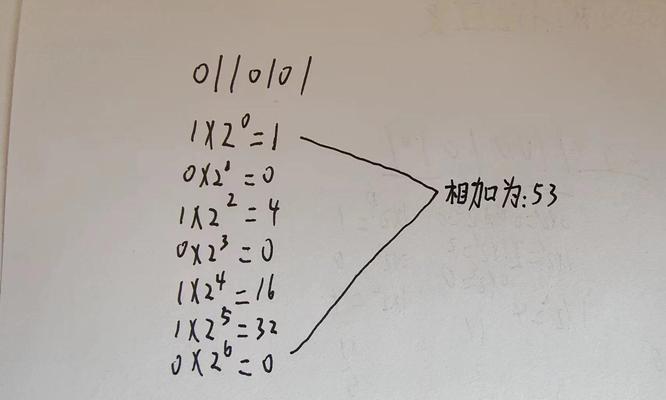 0110101
1×2⁰=1
0×2¹=0
1×2²=4
0×2³=0
1×2⁴=16
1×2⁵=32
0×2⁶=0
相加为:53